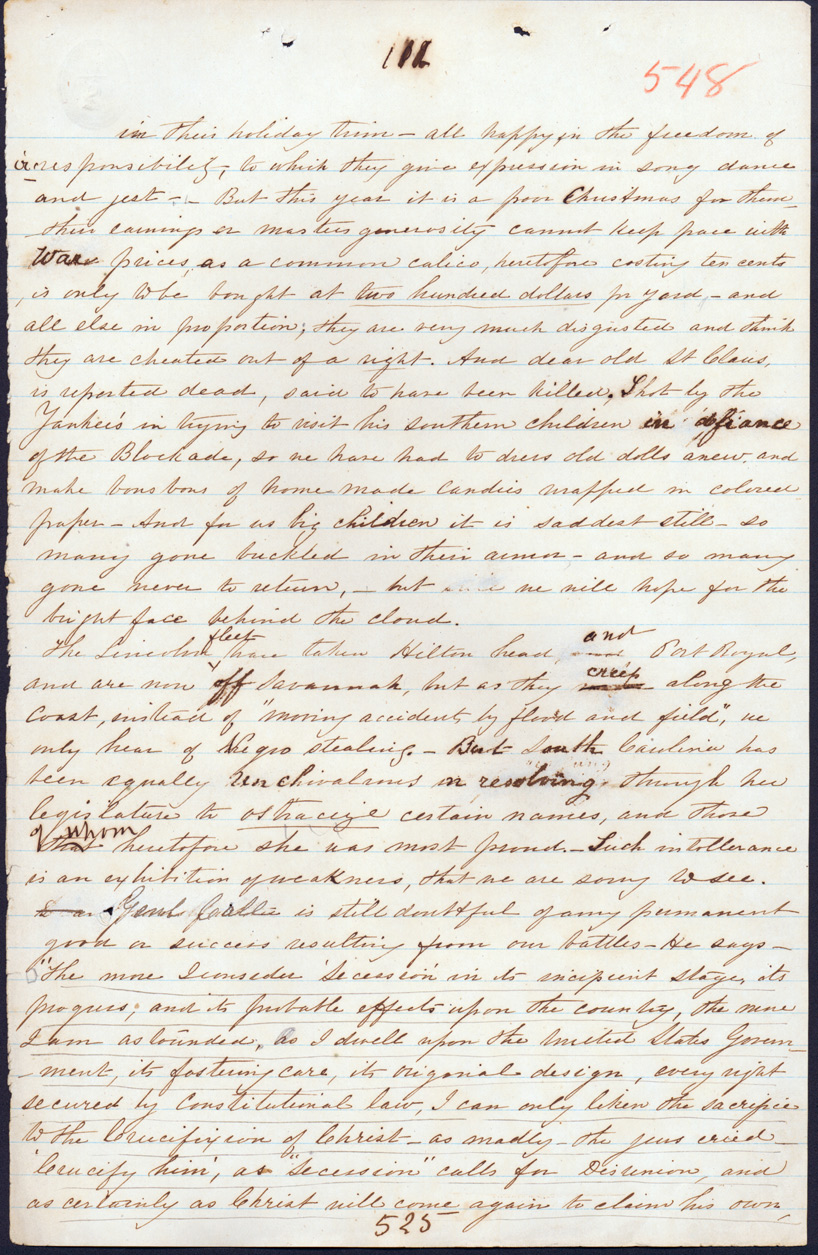 111
548
in their holiday trim – all happy in the freedom of
irresponsibility, to which they give expression in song dance
and jest – – But this year it is a poor Christmas for them
their earnings or masters generosity cannot keep pace with
War prices, as a common calico, heretofore costing ten cents
, is only to be bought at two hundred dollars pr yard – and
all else in proportion; they are very much disgusted and think
they are cheated out of a right. And dear old St Claus,
is reported dead, said to have been killed. Shot by the
Yankee's in trying to visit his southern children in defiance
of the Blockade, so we have had to dress old dolls anew, and
make bons bons of home-made candies wrapped in colored
paper – And for us big children it is saddest still – so
many gone buckled in their armor – and so many
gone never to return, – but we will hope for the
bright face behind the cloud.
The Lincoln fleet have taken Hilton head, and Port Royal,
and are now off Savannah, but as they creep along the
Coast, instead of "moving accidents by flood and field", we
only hear of Negro stealing. – But South Carolina has
been equally unchivalrous in resolving, through her
legislature to ostracize certain names, and those
of whom heretofore she was most proud. – Such intollerance
is an exhibition of weakness, that we are sorry to see.
Genl Gaillie is still doubtful of any permanent
good or success resulting from our battles – He says –
"The more I consider 'Secession' in its incipient stage, its
progress; and its probable effects upon the country, the more
I am astounded, as I dwell upon the United States Govern-
-ment, its fostering care, its origanial design, every right
secured by Constitutional law, I can only liken the sacrifice
to the Crucifixion of Christ – as madly – the jews cried –
'Crucify him', as "Secession" calls for Disunion, and
as certainly as Christ will come again to claim his own,
525